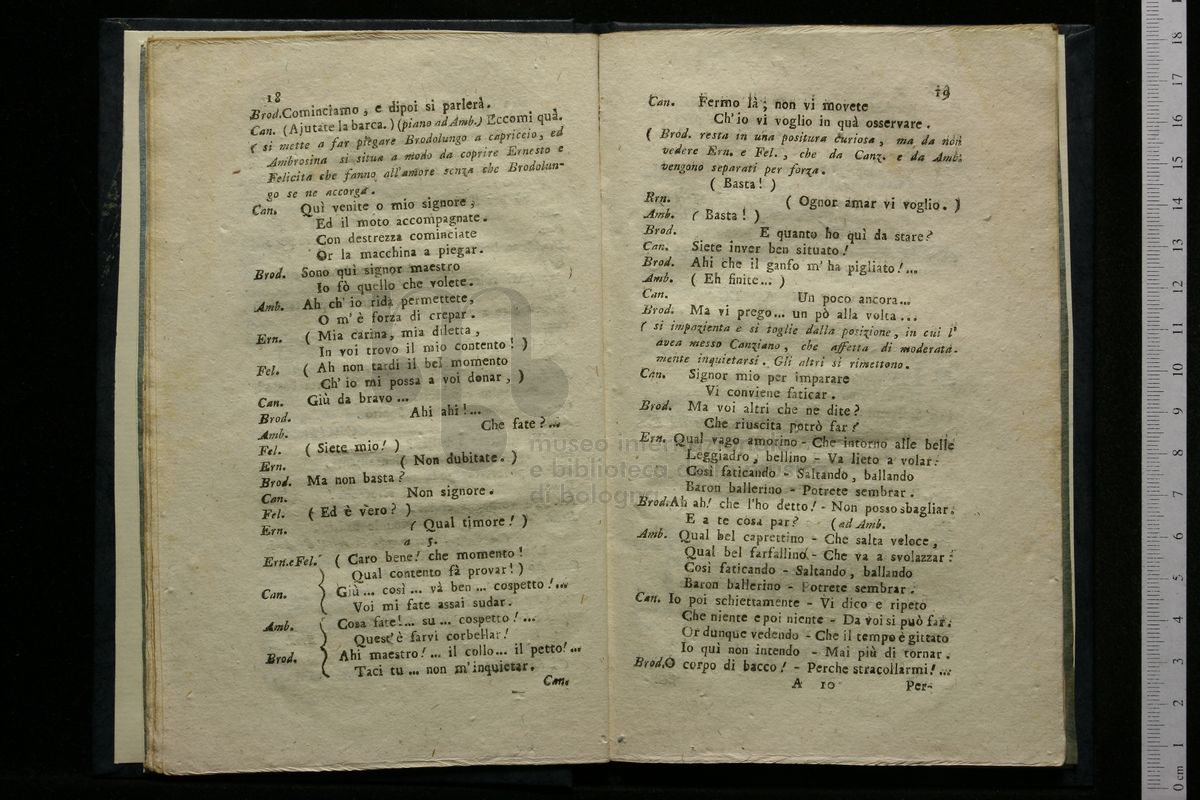 18
Brod. Cominciamo, e dipoi si parlerà.
Can. (Ajutate la barca.) (piano ad Amb.) Eccomi quà.
( si mette a far piegare Brodolungo a capriccio, ed
Ambrosina si situa a modo da coprire Ernesto e
Felicita che fanno all'amore senza che Brodolun-
go se ne accorga.
Can. Quì venite o mio signore,
Ed il moto accompagnate.
Con destrezza cominciate
Or la macchina a piegar.
Brod. Sono quì signor maestro
Io fò quello che volete.
Amb. Ah ch' io rida permettete,
O m' è forza di crepar.
Ern. ( Mia carina, mia diletta,
In voi trovo il mio contento! )
Fel. ( Ah non tardi il bel momento
Ch' io mi possa a voi donar, )
Can. Giù da bravo ...
Brod. Ahi ahi!...
Amb. Che fate?...
Fel. ( Siete mio! )
Ern. ( Non dubitate. )
Brod. Ma non basta?
Can. Non signore.
Fel. ( Ed è vero? )
Ern. ( Qual timore! )
a 5.
Ern.e Fel. ( Caro bene! che momento!
Qual contento fà provar! )
Can. Giù ... così ... và ben ... cospetto!...
Voi mi fate assai sudar.
Amb. Cosa fate!... su ... cospetto!...
Quest' è farvi corbellar!
Brod. Ahi maestro!... il collo... il petto!...
Taci tu ... non m'inquietar.
Can.
19
Can. Fermo là; non vi movete
Ch'io vi voglio in quà osservare.
( Brod. resta in una positura curiosa, ma da non
vedere Ern. e Fel., che da Canz. e da Amb.
vengono separati per forza.
( Basta! )
Ern. ( Ognor amar vi voglio. )
Amb. ( Basta! )
Brod. E quanto ho quì da stare?
Can. Siete inver ben situato!
Brod. Ahi che il ganfo m' ha pigliato!...
Amb. ( Eh finite... )
Can. Un poco ancora...
Brod. Ma vi prego... un pò alla volta...
( si impazienta e si toglie dalla posizione, in cui l'
avea messo Canziano, che affetta di moderata-
mente inquietarsi. Gli altri si rimettono.
Can. Signor mio per imparare
Vi conviene faticar.
Brod. Ma voi altri che ne dite?
Che riuscita potrò far?
Ern. Qual vago amorino - Che intorno alle belle
Leggiadro, bellino - Va lieto a volar:
Così faticando - Saltando, ballando
Baron ballerino - Potrete sembrar.
Brod. Ah ah! che l'ho detto! - Non posso sbagliar.
E a te cosa par? (ad Amb.
Amb. Qual bel caprettino - Che salta veloce,
Qual bel farfallino - Che va a svolazzar:
Così faticando - Saltando, ballando
Baron ballerino - Potrete sembrar.
Can. Io poi schiettamente - Vi dico e ripeto
Che niente e poi niente - Da voi si può far.
Or dunque vedendo - Che il tempo è gittato
Io quì non intendo - Mai più di tornar.
Brod. O corpo di bacco! - Perche stracollarmi!...
A 10 Per-